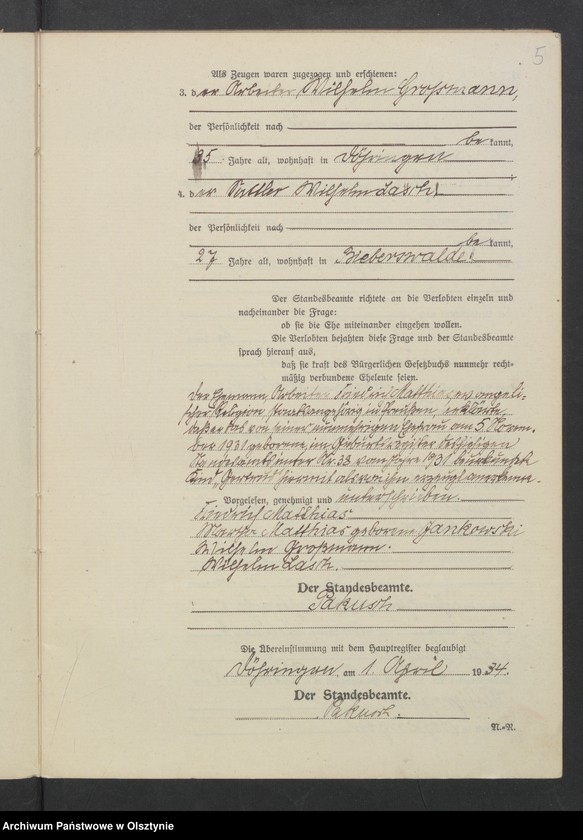 5
Als Zeugen waren zugezogen und erschienen:
3. der Arbeiter Wilhelm Großmann,
der Persönlichkeit nach
bekannt,
35 Jahre alt, wohnhaft in Döhringen
4. der Sattler Wilhelm Lasch,
der Persönlichkeit nach
bekannt,
27 Jahre alt, wohnhaft in Bieberswalde.
Der Standesbeamte richtete an die Verlobten einzeln und
nacheinander die Frage:
ob sie die Ehe miteinander eingehen wollen.
Die Verlobten bejahten diese Frage und der Standesbeamte
sprach hierauf aus,
daß sie kraft des Bürgerlichen Gesetzbuchs nunmehr recht-
mäßig verbundene Eheleute seien.
Der Ehemann Arbeiter Friedrich Matthias, evangeli-
scher Religion, staatsangehörig in Preußen, erklärte,
daß er das von seiner nunmehrigen Ehefrau am 5. Novem-
ber 1931 geborene, im Geburtsregister hiesigen
Standesamts unter Nr. 33 vom Jahre 1931 beurkundete
Kind „Gertrud" hiermit als von ihm erzeugt anerkenne.
Vorgelesen, genehmigt und unterschrieben.
Friedrich Matthias
Matthias geborene Jankowski
Wilhelm Großmann.
Wilhelm Lasch.
Der Standesbeamte.
Pakusch
Die Übereinstimmung mit dem Hauptregister beglaubigt
Döhringen, am 1. April 1934.
Der Standesbeamte.
Pakusch.
N.-R.
Archiwum Państwowe w Olsztynie